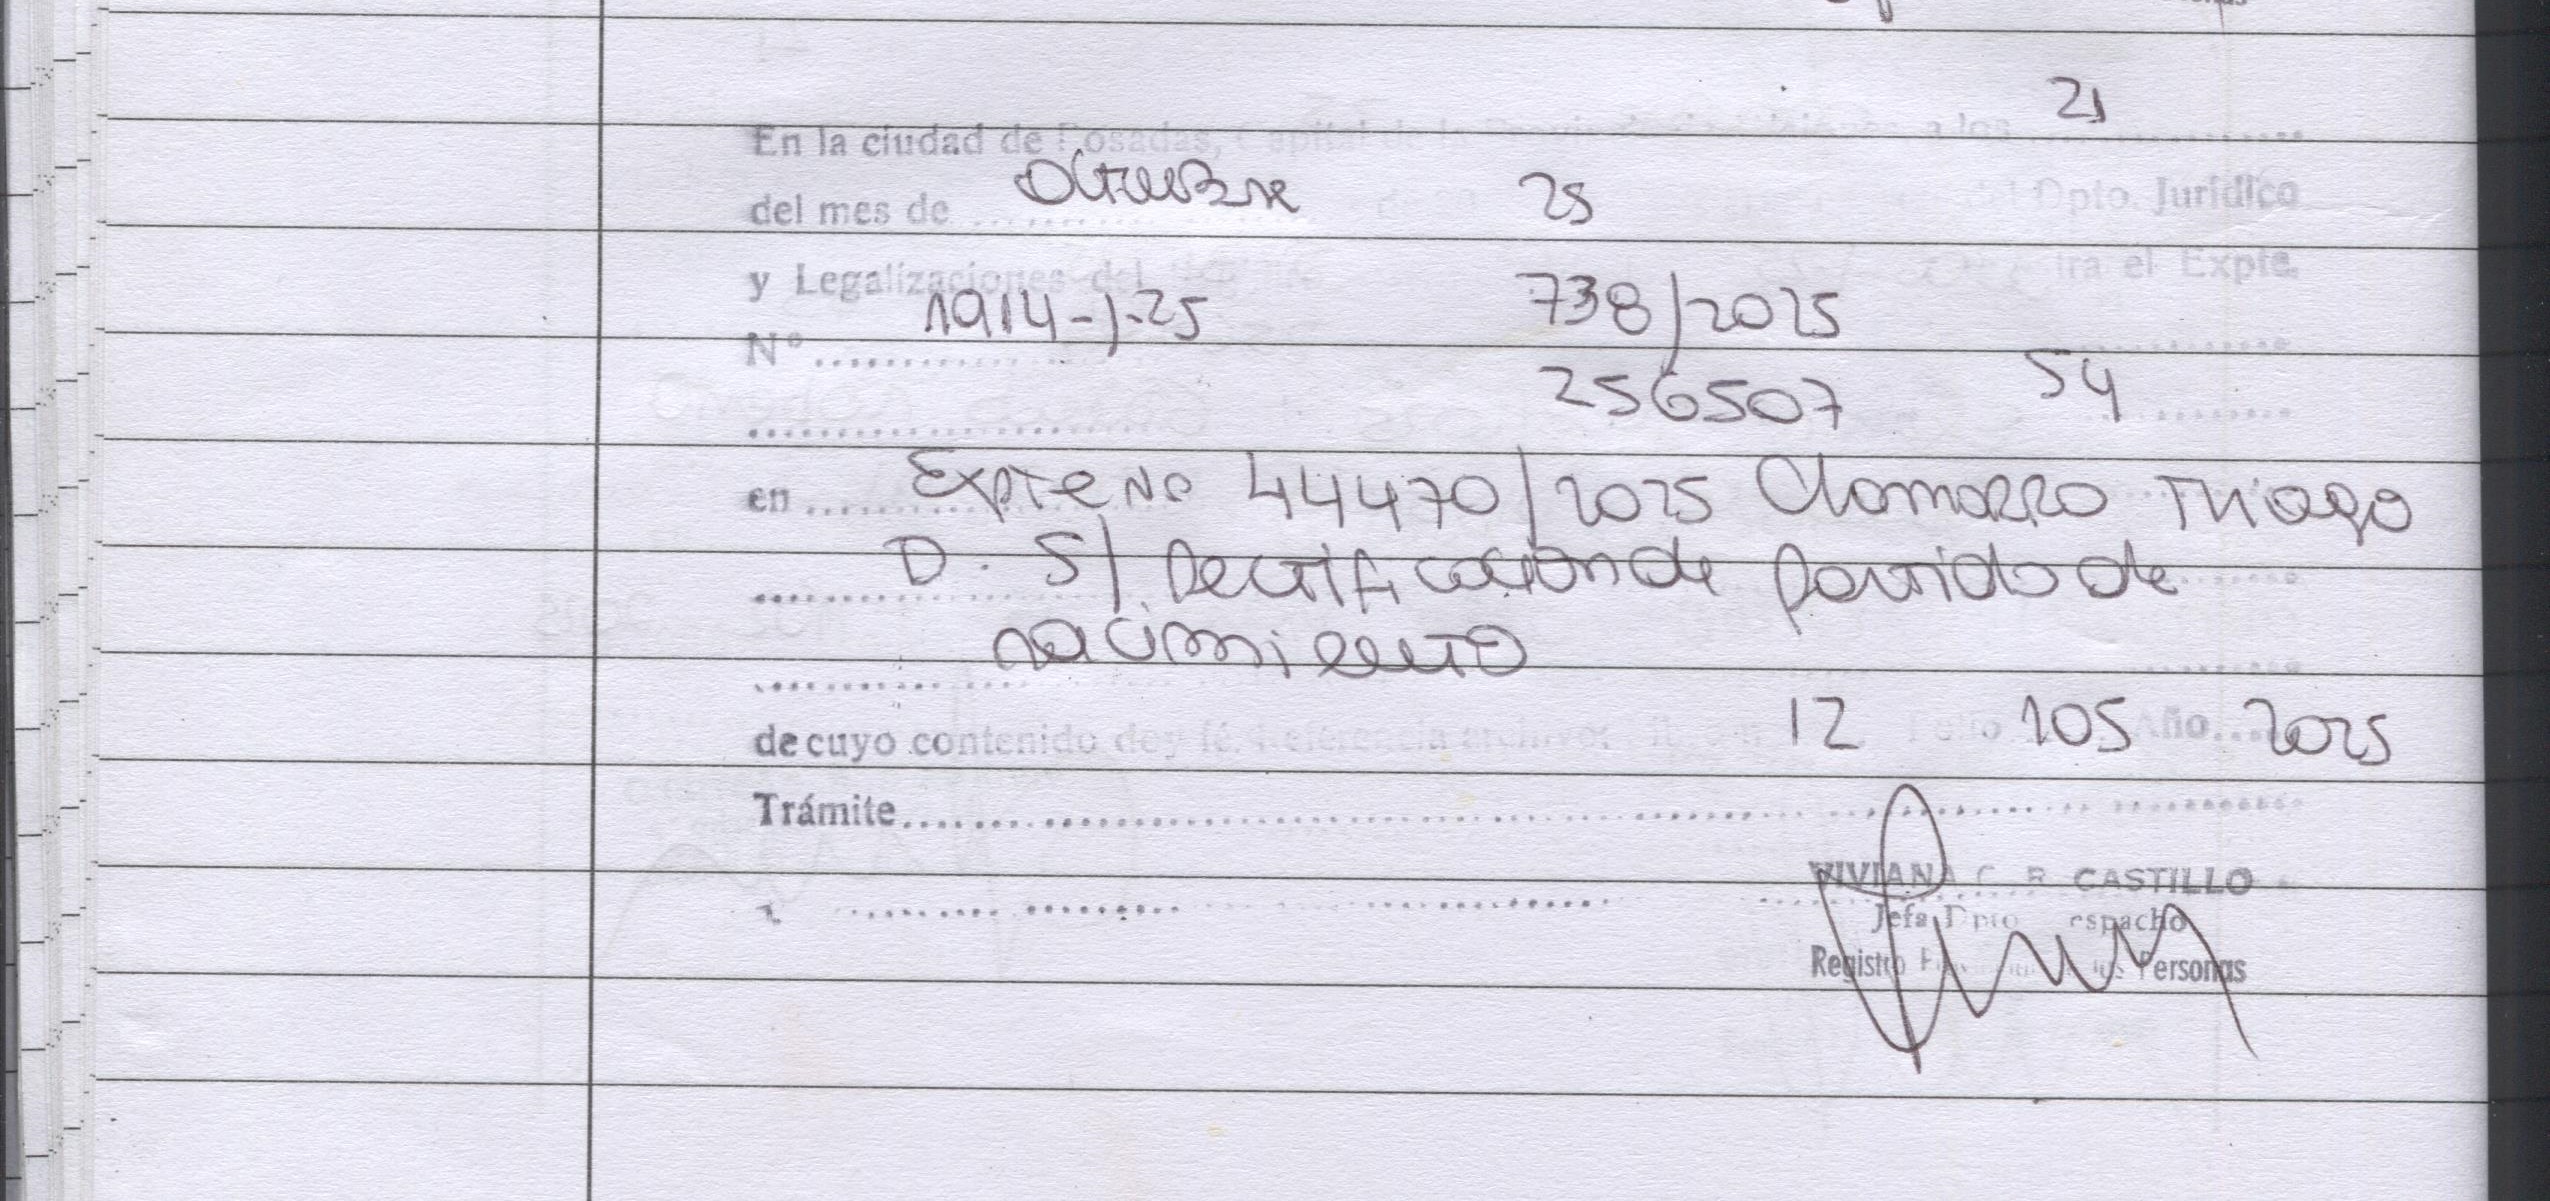 21
En la ciudad de Posadas, Capital de la a los
del mes de Octubre 25 Dpto. Jurídico
y Legalizaciones del tra el Expte.
Nº 1914-J-25 738/2025
256507 54
en Expte Nº 44470/2025 Chamorro Thiago
D. S/ Rectificacion de partida de
nacimiento
de cuyo contenido doy fé. Referencia archivo: 12 Folio 105 Año 2025
Trámite
VIVIANA C. R. CASTILLO
Jefa Dpto. espacho
Registro Personas